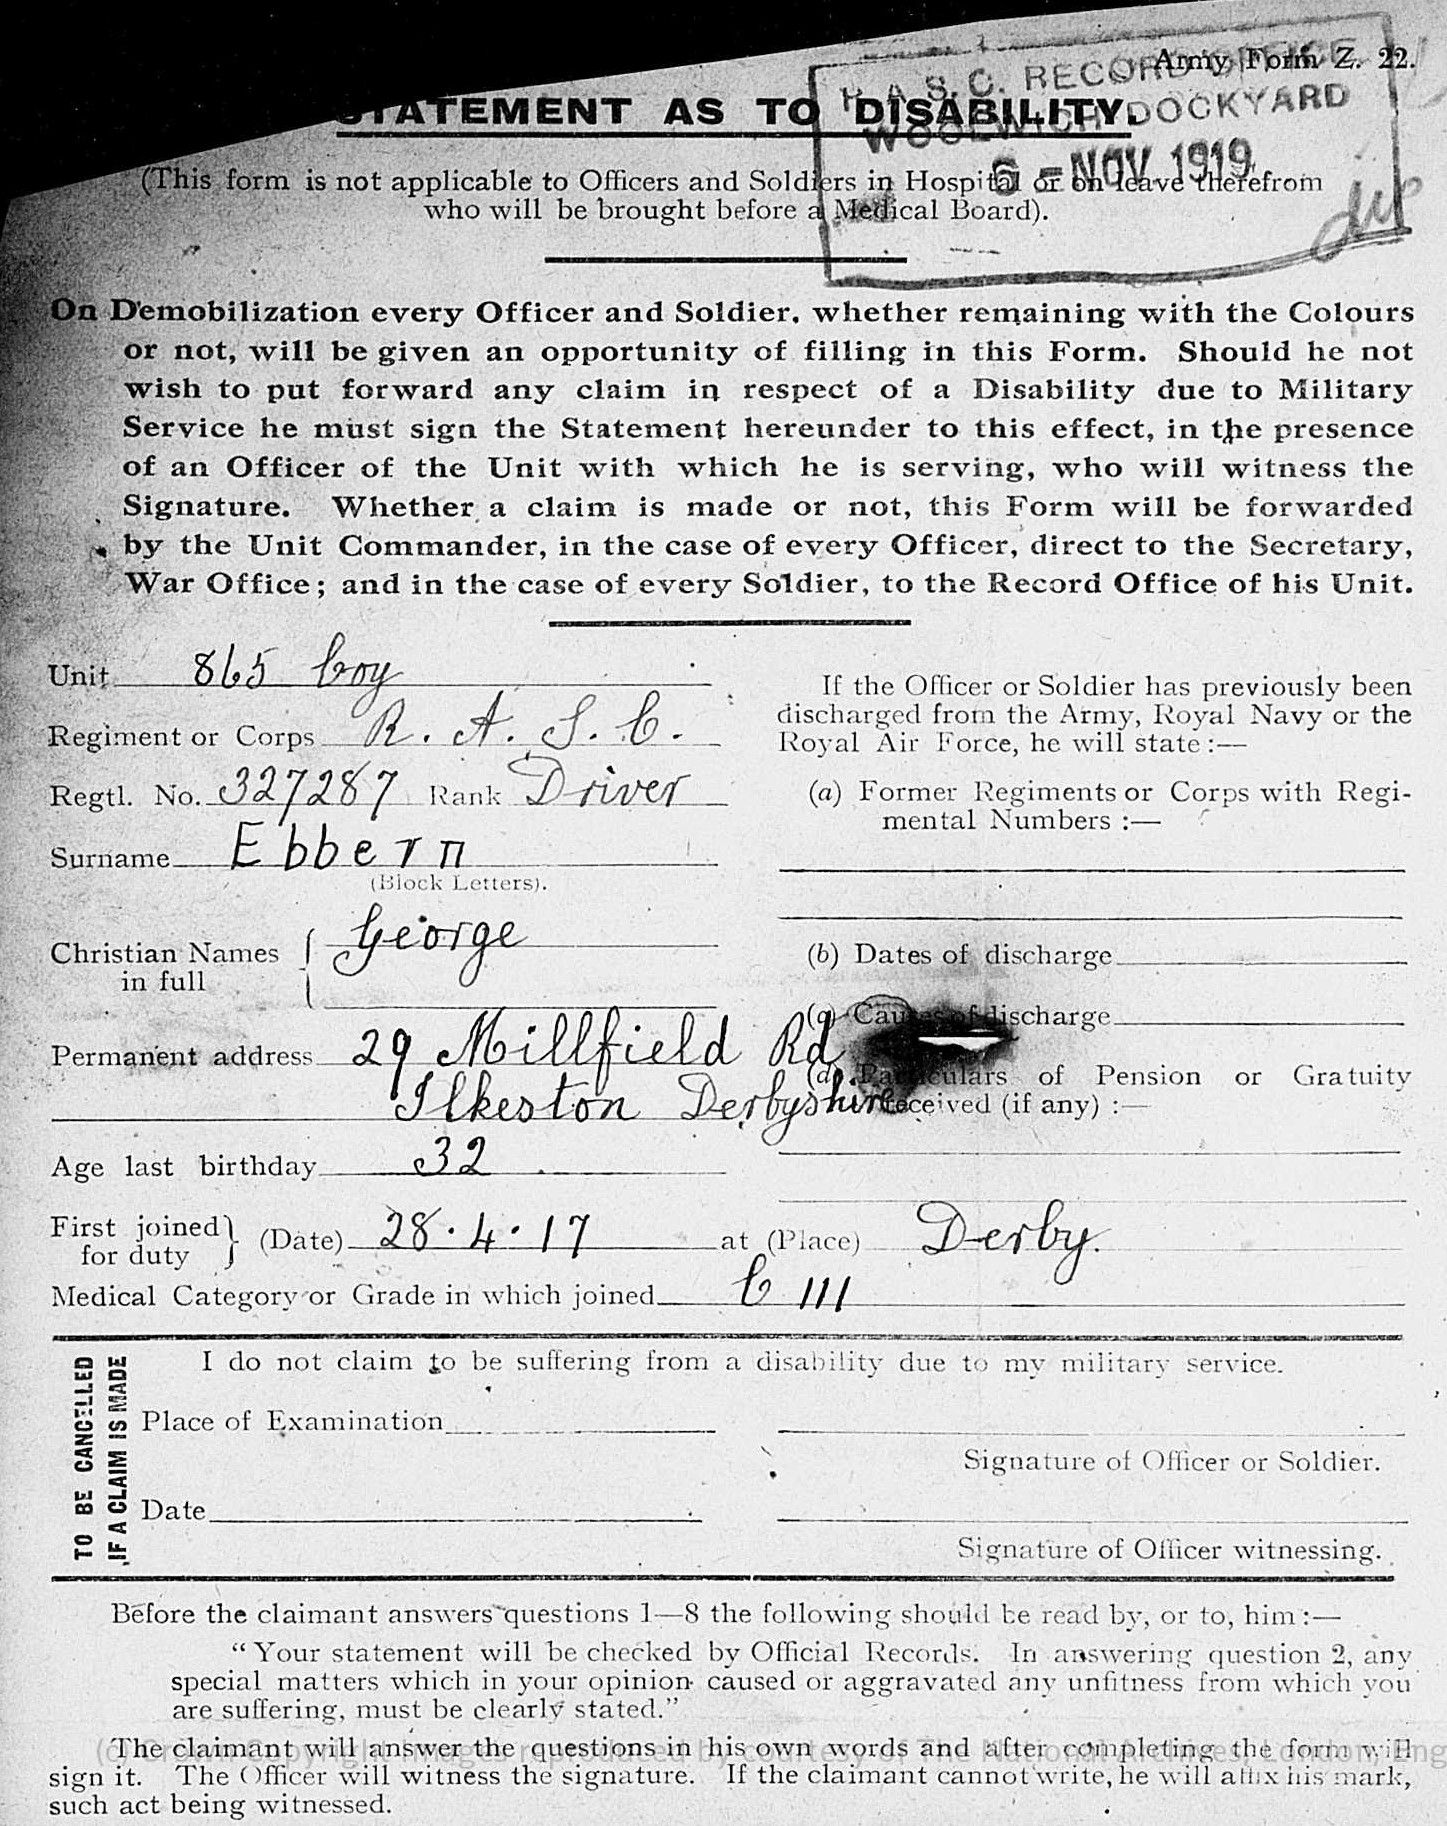 Army Form Z. 22.
R.A.S.C. RECORD OFFICE
WOOLWICH DOCKYARD
6 - NOV 1919
STATEMENT AS TO DISABILITY.
(This form is not applicable to Officers and Soldiers in Hospital or on leave therefrom
who will be brought before a Medical Board).
On Demobilization every Officer and Soldier, whether remaining with the Colours
or not, will be given an opportunity of filling in this Form. Should he not
wish to put forward any claim in respect of a Disability due to Military
Service he must sign the Statement hereunder to this effect, in the presence
of an Officer of the Unit with which he is serving, who will witness the
Signature. Whether a claim is made or not, this Form will be forwarded
by the Unit Commander, in the case of every Officer, direct to the Secretary,
War Office; and in the case of every Soldier, to the Record Office of his Unit.
Unit 865 Coy
Regiment or Corps R. A. S. C.
Regtl. No. 327287 Rank Driver
Surname Ebbern
(Block Letters).
Christian Names George
in full
Permanent address 29 Millfield Rd
Ilkeston Derbyshire
Age last birthday 32
If the Officer or Soldier has previously been
discharged from the Army, Royal Navy or the
Royal Air Force, he will state:—
(a) Former Regiments or Corps with Regi-
mental Numbers :—
(b) Dates of discharge
(c) Causes of discharge
(d) Particulars of Pension or Gratuity
received (if any) :—
First joined for duty (Date) 28.4.17 at (Place) Derby.
Medical Category or Grade in which joined C III
TO BE CANCELLED
IF A CLAIM IS MADE
I do not claim to be suffering from a disability due to my military service.
Place of Examination
Signature of Officer or Soldier.
Date
Signature of Officer witnessing.
Before the claimant answers questions 1—8 the following should be read by, or to, him:—
"Your statement will be checked by Official Records. In answering question 2, any
special matters which in your opinion caused or aggravated any unfitness from which you
are suffering, must be clearly stated."
The claimant will answer the questions in his own words and after completing the form will
sign it. The Officer will witness the signature. If the claimant cannot write, he will affix his mark,
such act being witnessed.
(c) Crown Copyright Images reproduced by courtesy of The National Archives, London, Eng